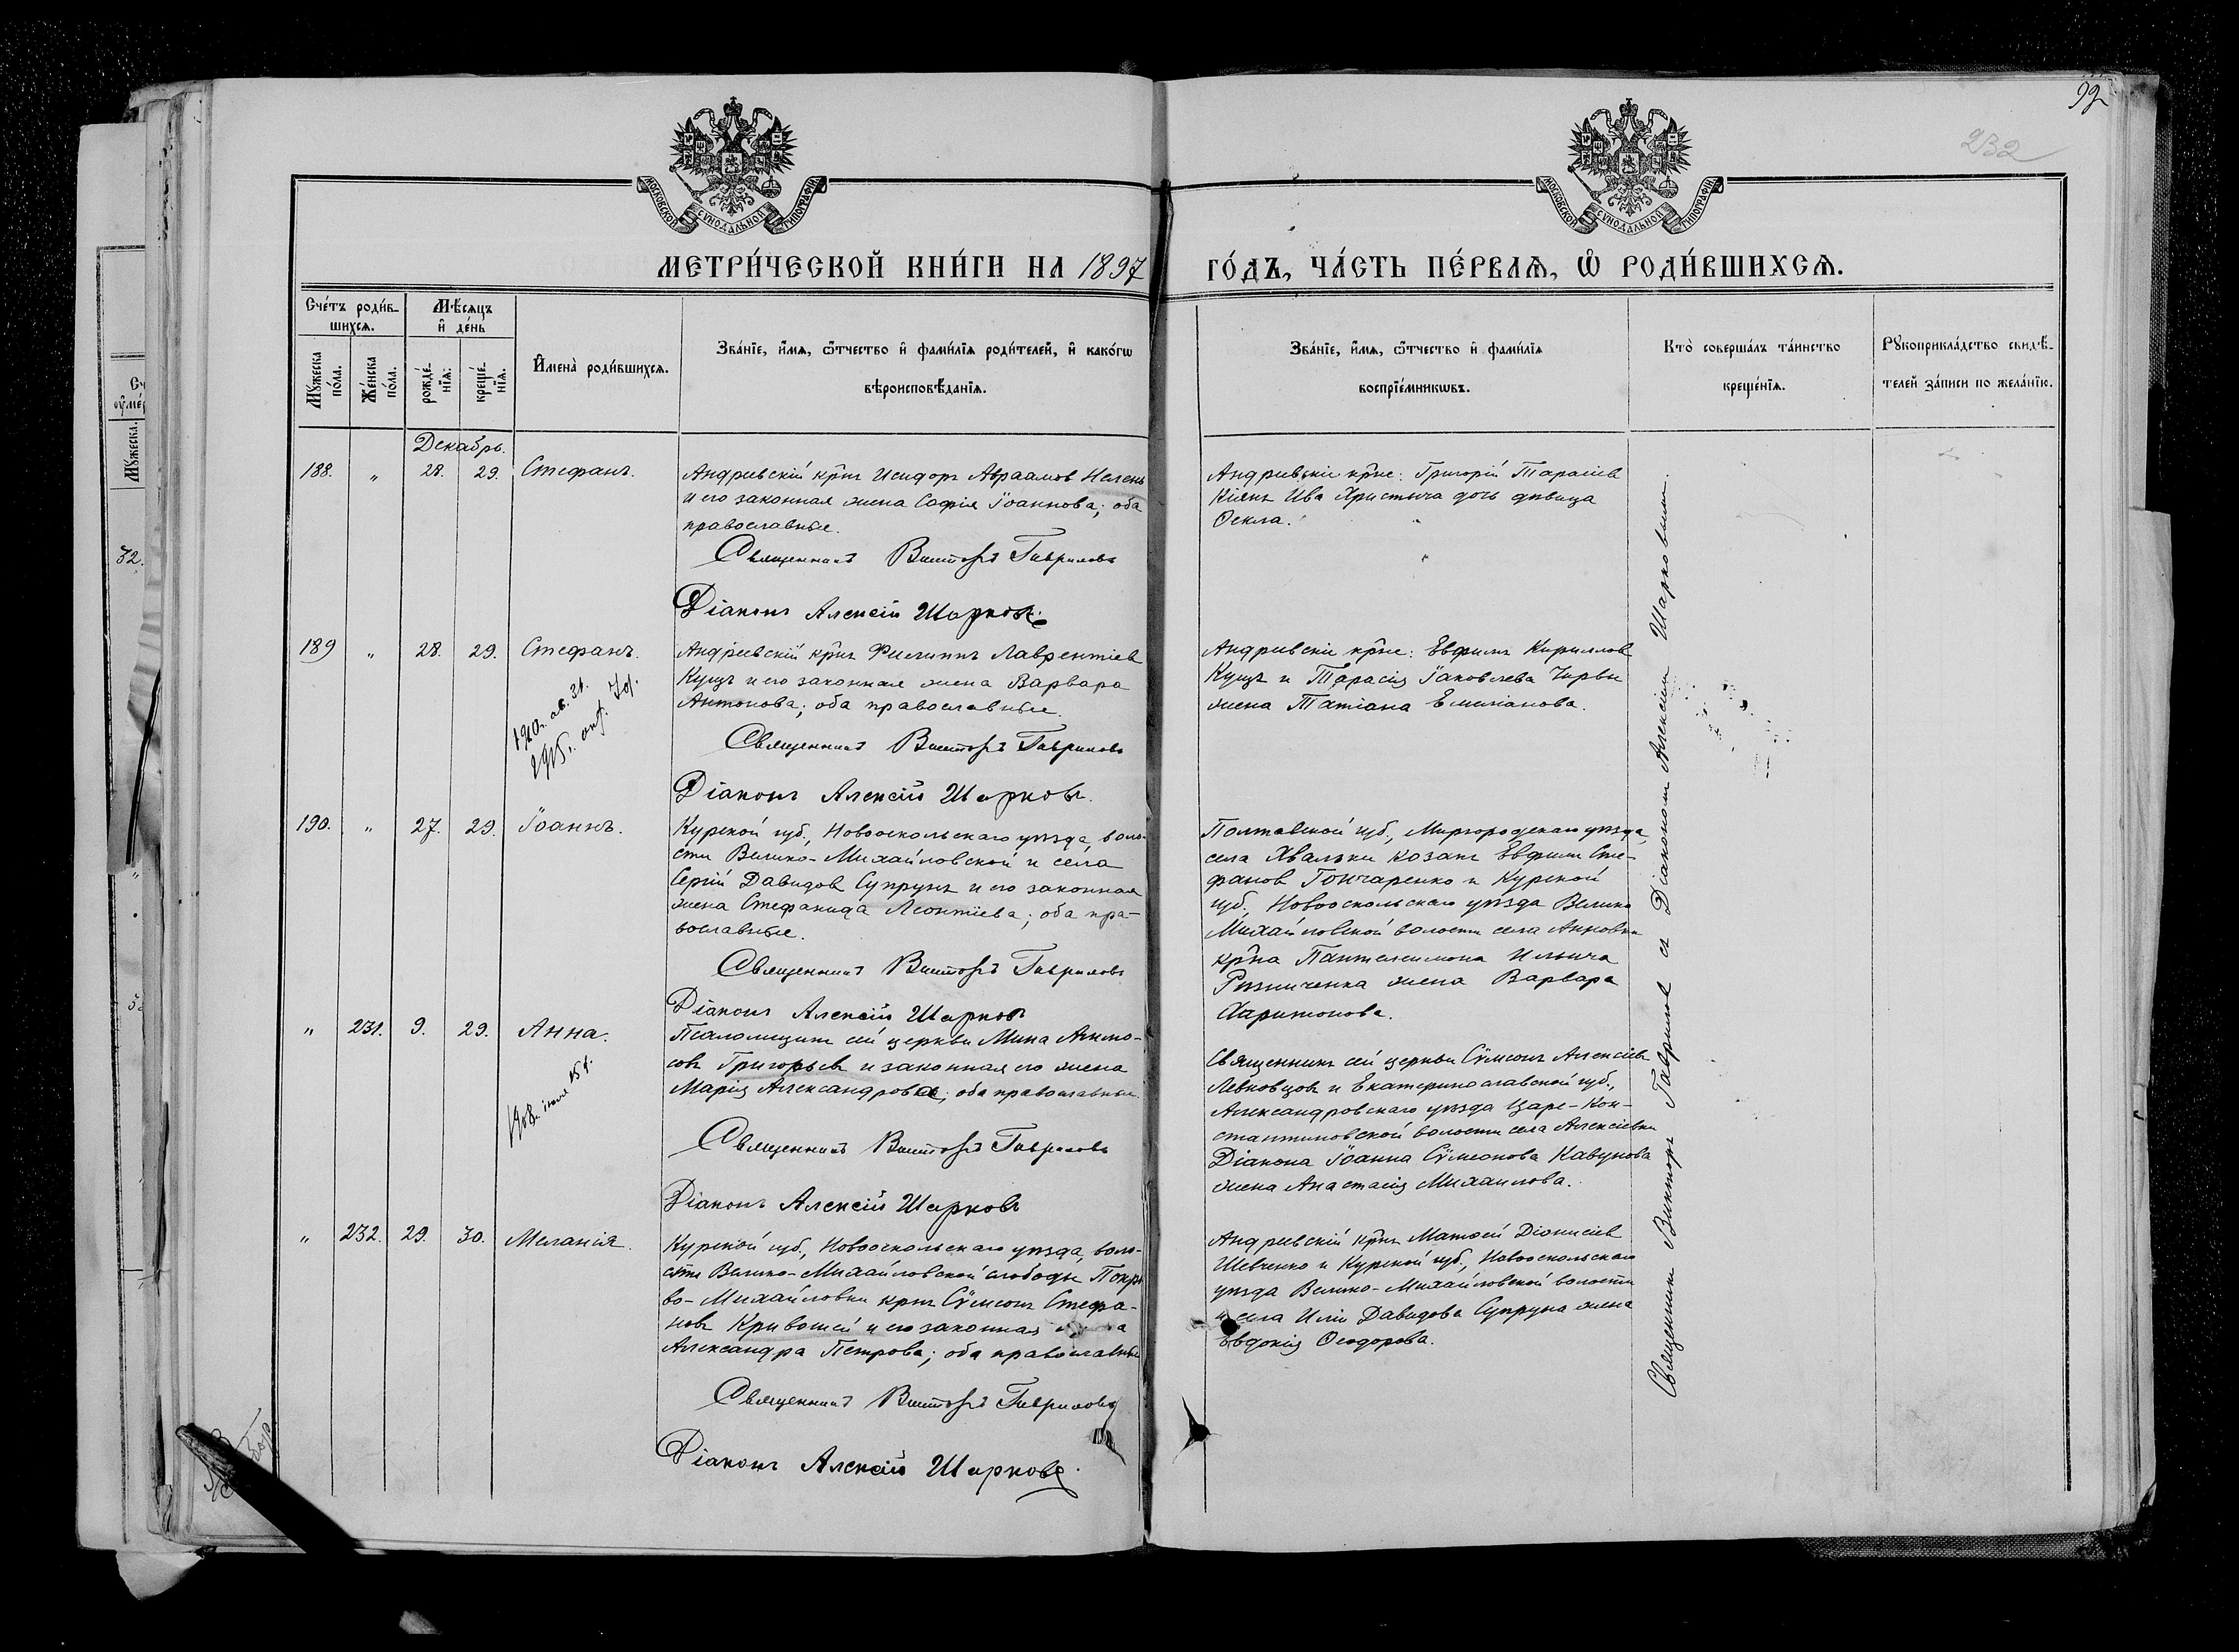 92
232
МОСКОВСКОЙ СѴНОДАЛЬНОЙ ТИПОГРАФІИ
МОСКОВСКОЙ СѴНОДАЛЬНОЙ ТИПОГРАФІИ
МЕТРИ́ЧЕСКОЙ КНИ́ГИ НА 1897
ГО́ДЪ, ЧА́СТЬ ПЕ́РВАѦ, Ѡ҆ РОДИ́ВШИХСѦ.
Сче́тъ роди́в-
шихсѧ.
Мꙋ́жеска
по́ла.
Же́нска
по́ла.
Мѣ́сяцъ
и҆ де́нь
рожде́-
нїѧ.
креще́-
нїѧ.
И҆мена̀ роди́вшихсѧ.
Зва́нїе, и҆́мѧ, ѻ҆́тчество и҆ фами́лїѧ роди́телей, и҆ како́гѡ
вѣроисповѣ́данїѧ.
Зва́нїе, и҆́мѧ, ѻ҆́тчество и҆ фами́лїѧ
воспрїе́мникѡвъ.
Кто̀ соверша́лъ та́инство
креще́нїѧ.
Рꙋкоприкла́дство свидѣ́-
телей за́писи по жела́нїю.
Декабрь.
188. „ 28. 29. Стефанъ.
Андреевскій кр̃нъ Исидоръ Авраамов
и его законная жена Софія Іоаннова; оба
православные.
Священникъ Викторъ Гавриловъ
Діаконъ Алексій Шарковъ.
Андреевскіе кр̃не: Григорій Тарасіев
дочь девица
Ѳекла.
189 „ 28. 29. Стефанъ.
1910. ав. 31.
1915 г.
Андреевскій кр̃нъ Филиппъ Лаврентіев
Кущъ и его законная жена Варвара
Антонова; оба православные.
Священникъ Викторъ Гавриловъ
Діаконъ Алексій Шарковъ.
Андреевскіе кр̃не: Евфимъ Кириллов
Кущъ и Тарасія Іаковлева
жена Татіана Емиліанова.
190. „ 27. 29. Іоаннъ.
Курской губ., Новооскольскаго уѣзда, воло-
сти Велико-Михайловской и села
Сергій Давидов Супрунъ и его законная
жена Стефанида Леонтіева; оба пра-
вославные.
Священникъ Викторъ Гавриловъ
Діаконъ Алексій Шарковъ
Полтавской губ., Миргородскаго уѣзда,
села козакъ Евфимъ Сте-
фанов Гончаренко и Курской
губ., Новооскольскаго уѣзда Велико
Михайловской волости села Анновки
кр̃на Пантелеимона Ильича
Рѣзниченка жена Варвара
Харитонова.
„ 231. 9. 29. Анна.
1908. іюля 15 д.
Псаломщикъ сей церкви Мина
Григорьев и законная его жена
Марія Александрова; оба православные
Священникъ Викторъ Гавриловъ
Діаконъ Алексій Шарковъ
Священникъ сей церкви Сѵмеонъ Алексіев
Левковцов и Екатеринославской губ.,
Александровскаго уѣзда Царе-Кон-
стантиновской волости села Алексіевки
Діакона Іоанна Сѵмеонова Кавунова
жена Анастасія Михаилова.
„ 232. 29. 30. Меланія.
Курской губ., Новооскольскаго уѣзда, воло-
сти Велико-Михайловской слободы Покро
во-Михайловки кр̃нъ Сѵмеонъ Стефа-
новъ Кривошей и его законная жена
Александра Петрова; оба православные
Священникъ Викторъ Гавриловъ
Діаконъ Алексій Шарковъ.
Андреевскій кр̃нъ Матѳей Діонисіев
Шевченко и Курской губ., Новооскольскаго
уѣзда Велико-Михайловской волости
и села Иліи Давидова Супруна жена
Евдокія Ѳеодорова.
Священникъ Викторъ Гаврилов съ Діакономъ Алексіемъ Шарковымъ.